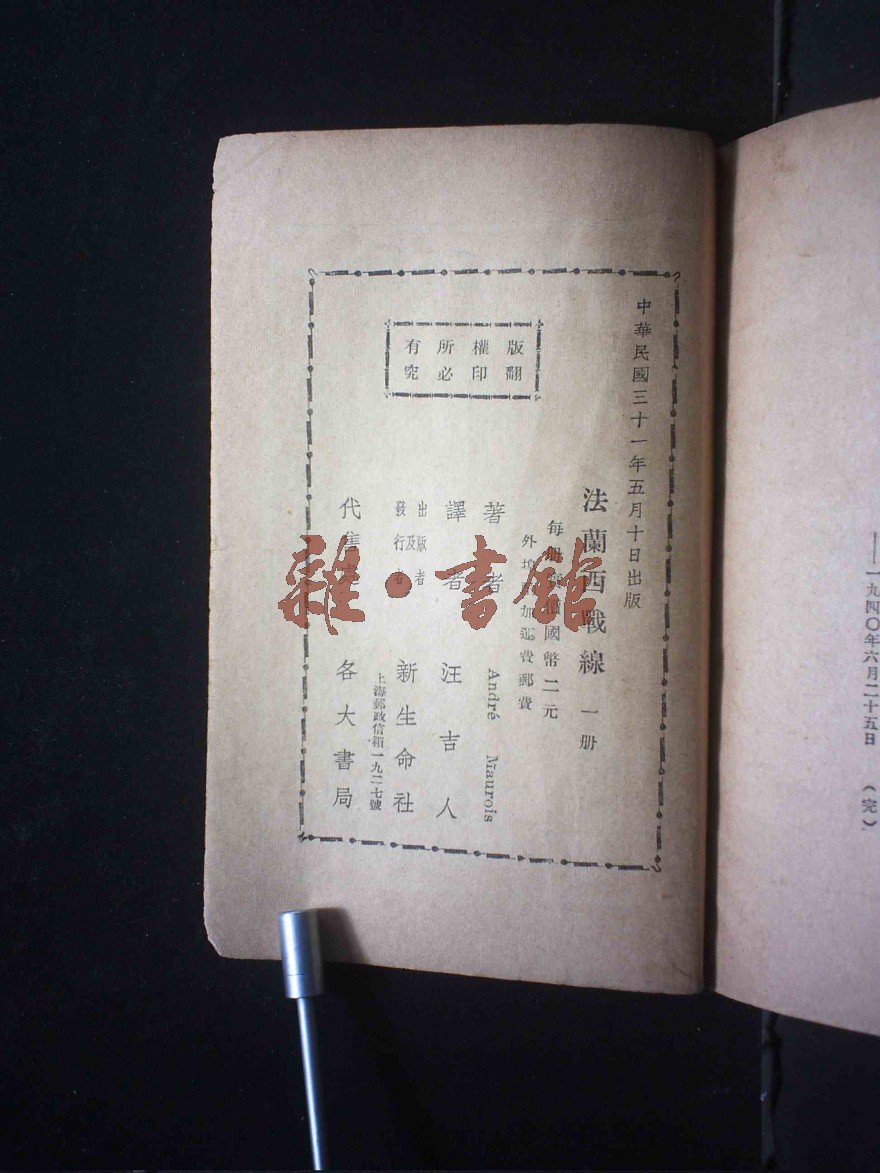 ——一九四〇年六月二十五日（完）
中華民國三十一年五月十日出版
法蘭西戰線 一册
每册 國幣二元
外埠 加運費郵費
著者 André Maurois
譯者 汪吉人
出版及發行者 新生命社
上海郵政信箱一九二七號
代售處 各大書局
版權所有
翻印必究
雜·書館